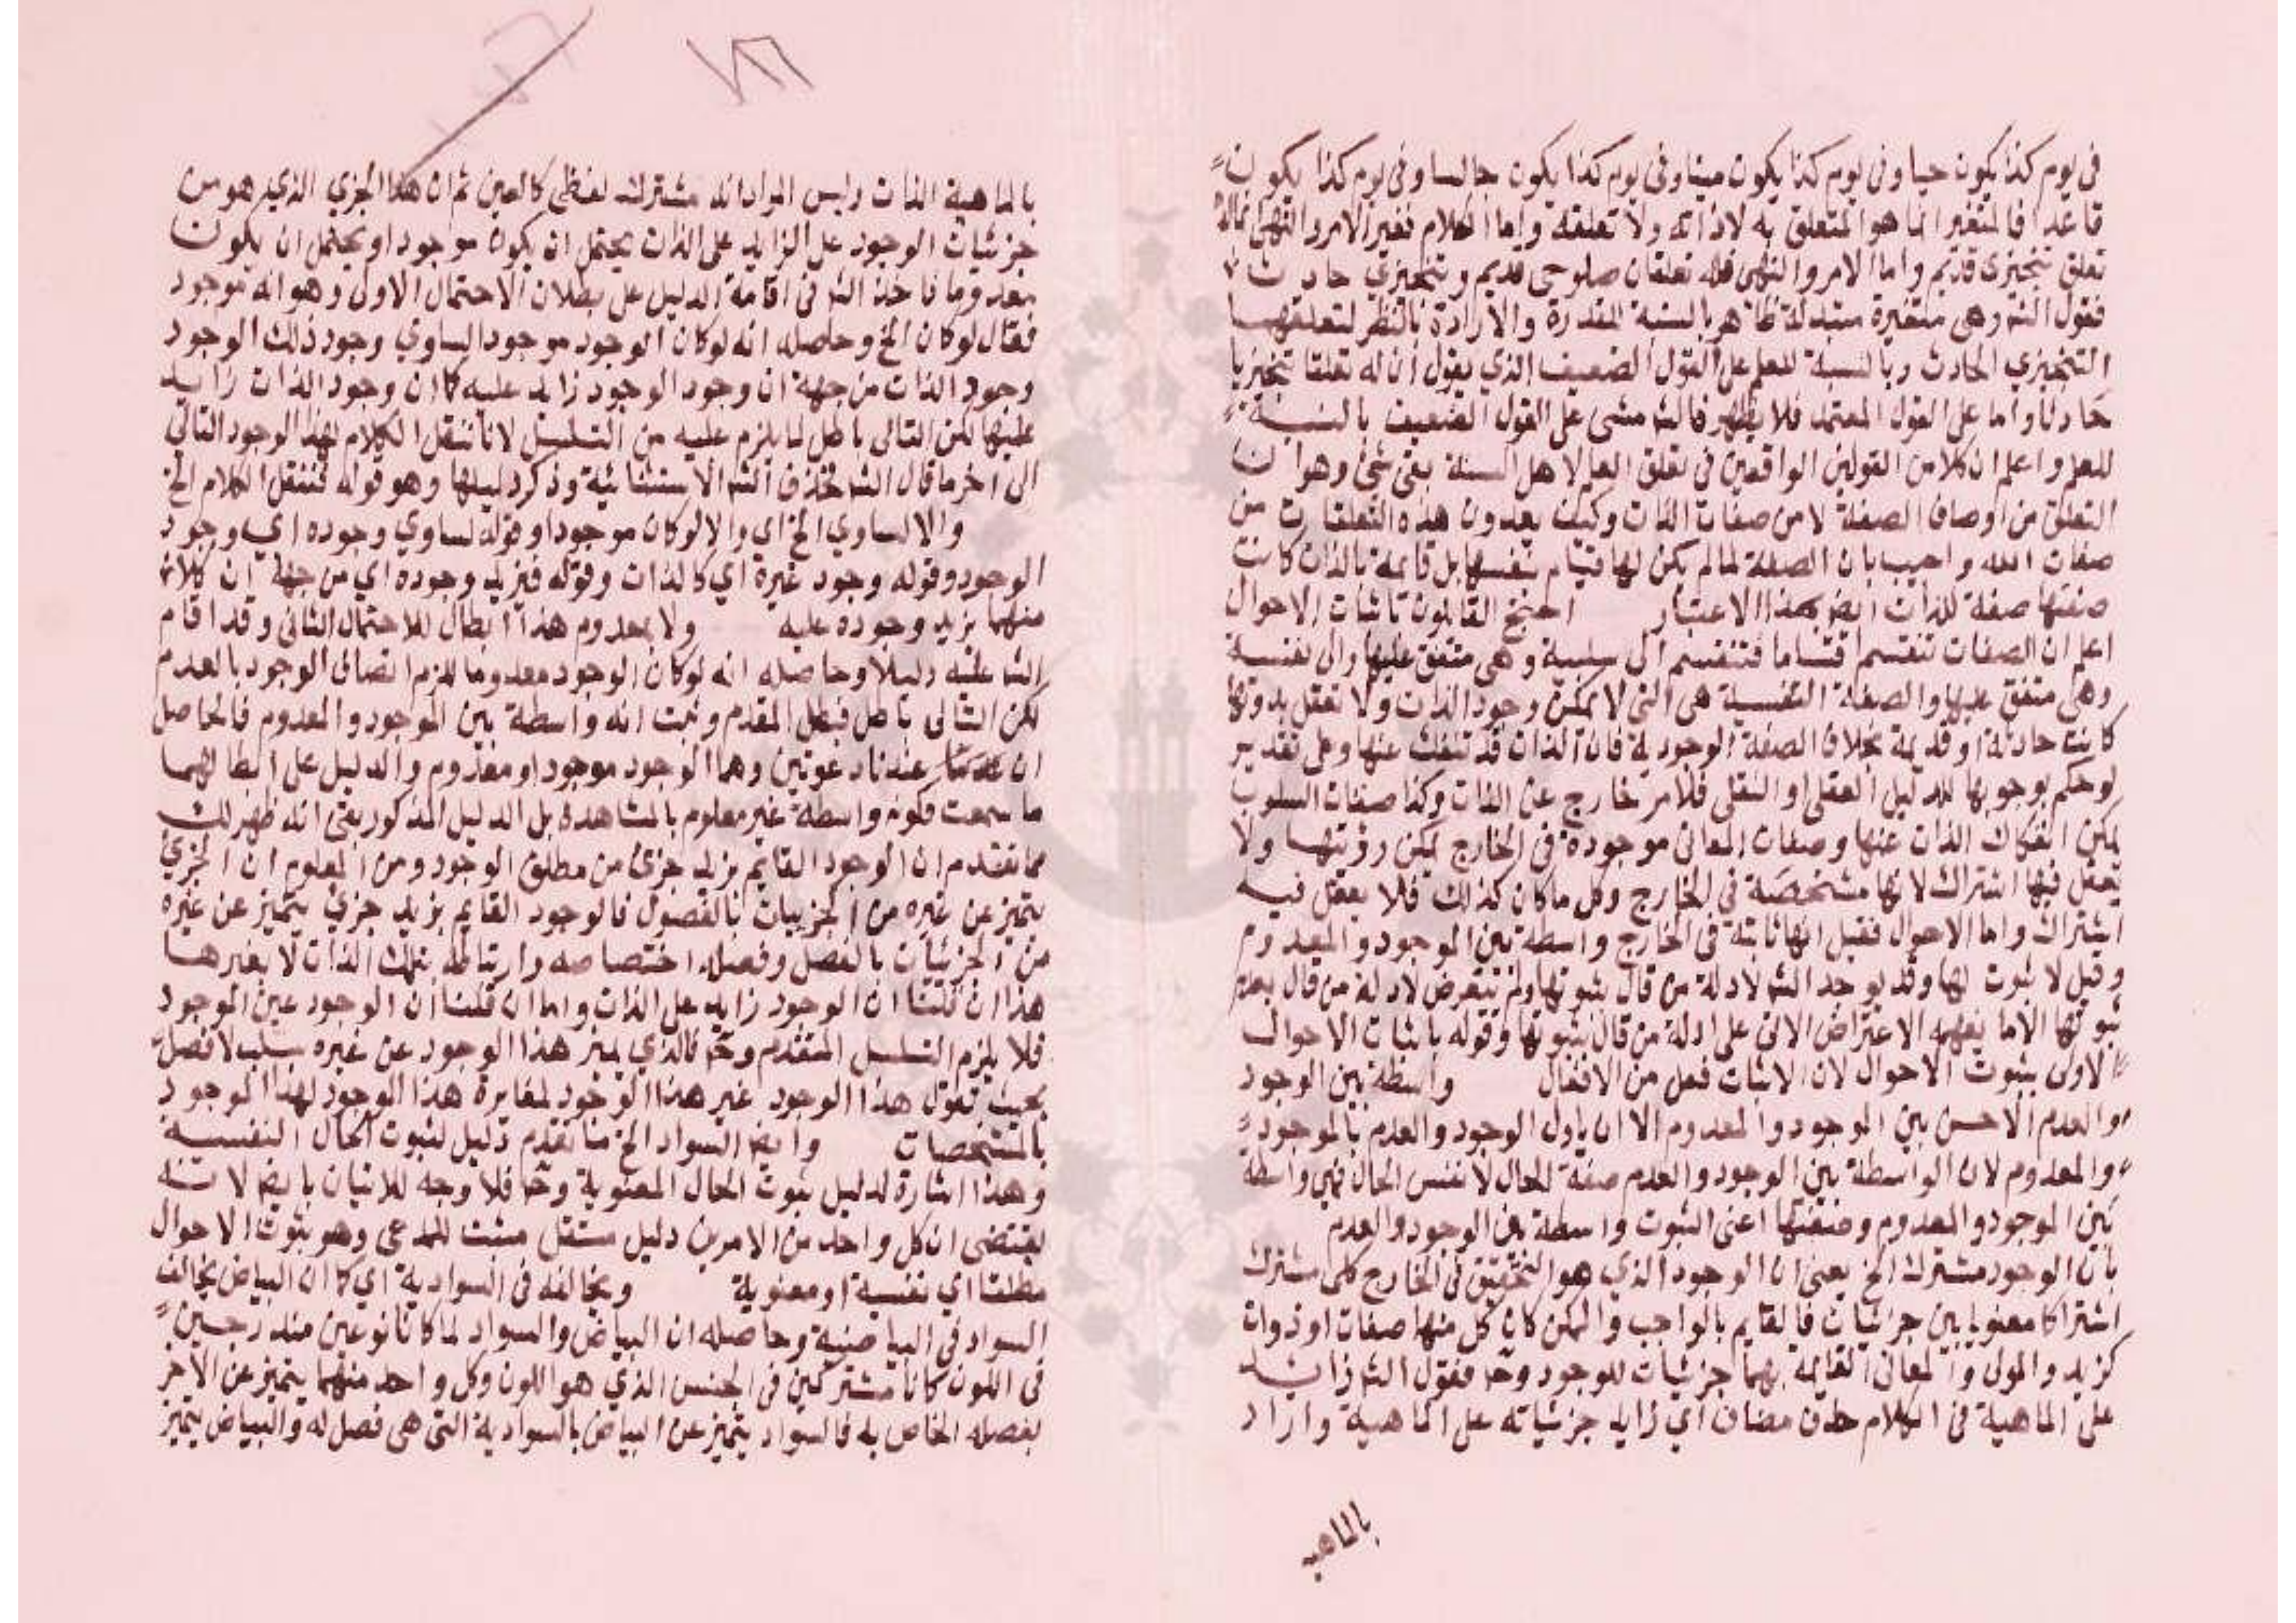 في يوم كذا يكون حيا وفي يوم كذا يكون ميتا وفي يوم كذا يكون جالسا وفي يوم كذا يكون
قاعدا فالمتغير انما هو المتعلق به لا ذاته ولا تعلقه واما الكلام فغير الامر والنهي فماله
تعلق تنجيزي قديم واما الامر والنهي فله تعلقان صلوحي قديم وتنجيزي حادث
فقول الشه وهي متغيرة متبدلة ظاهر بالنسبة للقدرة والارادة بالنظر لتعلقهما
التنجيزي الحادث وبالنسبة للعلم على القول الضعيف الذي يقول ان له تعلقا تنجيزيا
حادثا واما على القول المعتمد فلا يظهر فالشه مشى على القول الضعيف بالنسبة
للعلم واعلم ان كلا من القولين الواقعين في تعلق العلم لاهل السنة بقي شئ وهو ان
التعلق من اوصاف الصفة لا من صفات الذات وكيف يعدون هذه التعلقات من
صفات الله واجيب بان الصفة لما لم يكن لها قيام بنفسها بل قايمة بالذات كانت
صفتها صفة للذات ايضا بهذا الاعتبار احتج القايلون باثبات الاحوال
اعلم ان الصفات تنقسم اقساما فتنقسم الى سلبية وهي متفق عليها والى نفسية
وهي متفق عليها والصفة النفسية هي التي لا يمكن وجود الذات ولا تعقل بدونها
كانت حادثة او قديمة بخلاف الصفة الوجودية فان الذات قد تنفك عنها وعلى تقدير
لو حكم بوجوبها للدليل العقلي او النقلي فلامر خارج عن الذات وكذا صفات السلوب
يمكن انفكاك الذات عنها وصفات المعاني موجودة في الخارج يمكن رؤيتها ولا
يعقل فيها اشتراك لانها مشخصة في الخارج وكل ما كان كذلك فلا يعقل فيه
اشتراك واما الاحوال فقيل انها ثابتة في الخارج واسطة بين الموجود والمعدوم
وقيل لا ثبوت لها وقد يوجد الشه لادلة من قال بثبوتها ولم يتعرض لادلة من قال بعدم
ثبوتها الا ما يفهمه الاعتراض الاتي على ادلة من قال بثبوتها وقوله باثبات الاحوال
الاولى بثبوت الاحوال لان الاثبات فعل من الافعال واسطة بين الوجود
والعدم الاحسن بين الموجود والمعدوم الا ان ياول الوجود والعدم بالموجود
والمعدوم لان الواسطة بين الوجود والعدم صفة الحال لا نفس الحال فهي واسطة
بين الموجود والمعدوم وصفتها اعني الثبوت واسطة بين الوجود والعدم
بان الوجود مشترك الخ يعني ان الوجود الذي هو التحقق في الخارج كلي مشترك
اشتراكا معنويا بين جزئيات فالقايم بالواجب والممكن كان كل منها صفات او ذوات
كزيد والمولى والمعاني القايمة بهما جزئيات للوجود وح فقول الشه زايد
على الماهية في الكلام حذف مضاف اي زايد جزئياته على الماهية واراد
بالماهية
بالماهية الذات وليس المراد انه مشترك لفظي كالعين ثم ان هذا الجزي الذي هو من
جزئيات الوجود على الزايد على الذات يحتمل ان يكون موجودا ويحتمل ان يكون
معدوما فاخذ الشه في اقامة الدليل على بطلان الاحتمال الاول وهو انه موجود
فقال لو كان الخ وحاصله انه لو كان الوجود موجودا لساوى وجود ذلك الوجود
وجود الذات من جهة ان وجود الوجود زايد عليه كما ان وجود الذات زايد
عليها لكن التالي باطل لما يلزم عليه من التسلسل لانا ننقل الكلام لهذا الوجود الثاني
الى اخر ما قال الشه فحذف الشه الاستثنائية وذكر دليلها وهو قوله فننقل الكلام الخ
والا لساوى الخ اي والا لو كان موجودا وقوله لساوى وجوده اي وجود
الوجود وقوله وجود غيره اي كالذات وقوله فيزيد وجوده اي من جهة ان كلا
منهما يزيد وجوده عليه ولا بمعدوم هذا ابطال للاحتمال الثاني وقد اقام
الشه عليه دليلا وحاصله انه لو كان الوجود معدوما للزم اتصاف الوجود بالعدم
لكن التالي باطل فبطل المقدم وثبت انه واسطة بين الموجود والمعدوم فالحاصل
ان عندنا دعوتين وهما الوجود موجود او معدوم والدليل على ابطالهما
ما سمعت فكونه واسطة غير معلوم بالمشاهدة بل الدليل المذكور بقي انه ظهر لك
مما تقدم ان الوجود القايم بزيد جزئ من مطلق الوجود ومن المعلوم ان الجزئ
يتميز عن غيره من الجزييات بالفصول فالوجود القايم بزيد جزئ يتميز عن غيره
من الجزئيات بالفصل وفصله اختصاصه وارتباطه بتلك الذات لا بغيرها
هذا ان قلنا ان الوجود زايد على الذات واما ان قلنا ان الوجود عين الموجود
فلا يلزم التسلسل المتقدم وح فالذي يميز هذا الوجود عن غيره سلب لا فصل
بحيث تقول هذا الوجود غير هذا الوجود لمغايرة هذا الوجود لهذا الموجود
بالمشخصات وايضا السواد الخ ما تقدم دليل لثبوت الحال النفسية
وهذا اشارة لدليل ثبوت الحال المعنوية وح فلا وجه للاتيان بايضا لانه
يقتضي ان كل واحد من الامرين دليل مستقل مثبت للمدعى وهو ثبوت الاحوال
مطلقا اي نفسية او معنوية ويخالفه في السوادية اي كما ان البياض يخالف
السواد في البياضية وحاصله ان البياض والسواد لما كانا نوعين مندرجين
في اللون كانا مشتركين في الجنس الذي هو اللون وكل واحد منهما يتميز عن الاخر
بفصله الخاص به فالسواد يتميز عن البياض بالسوادية التي هي فصل له والبياض يتميز